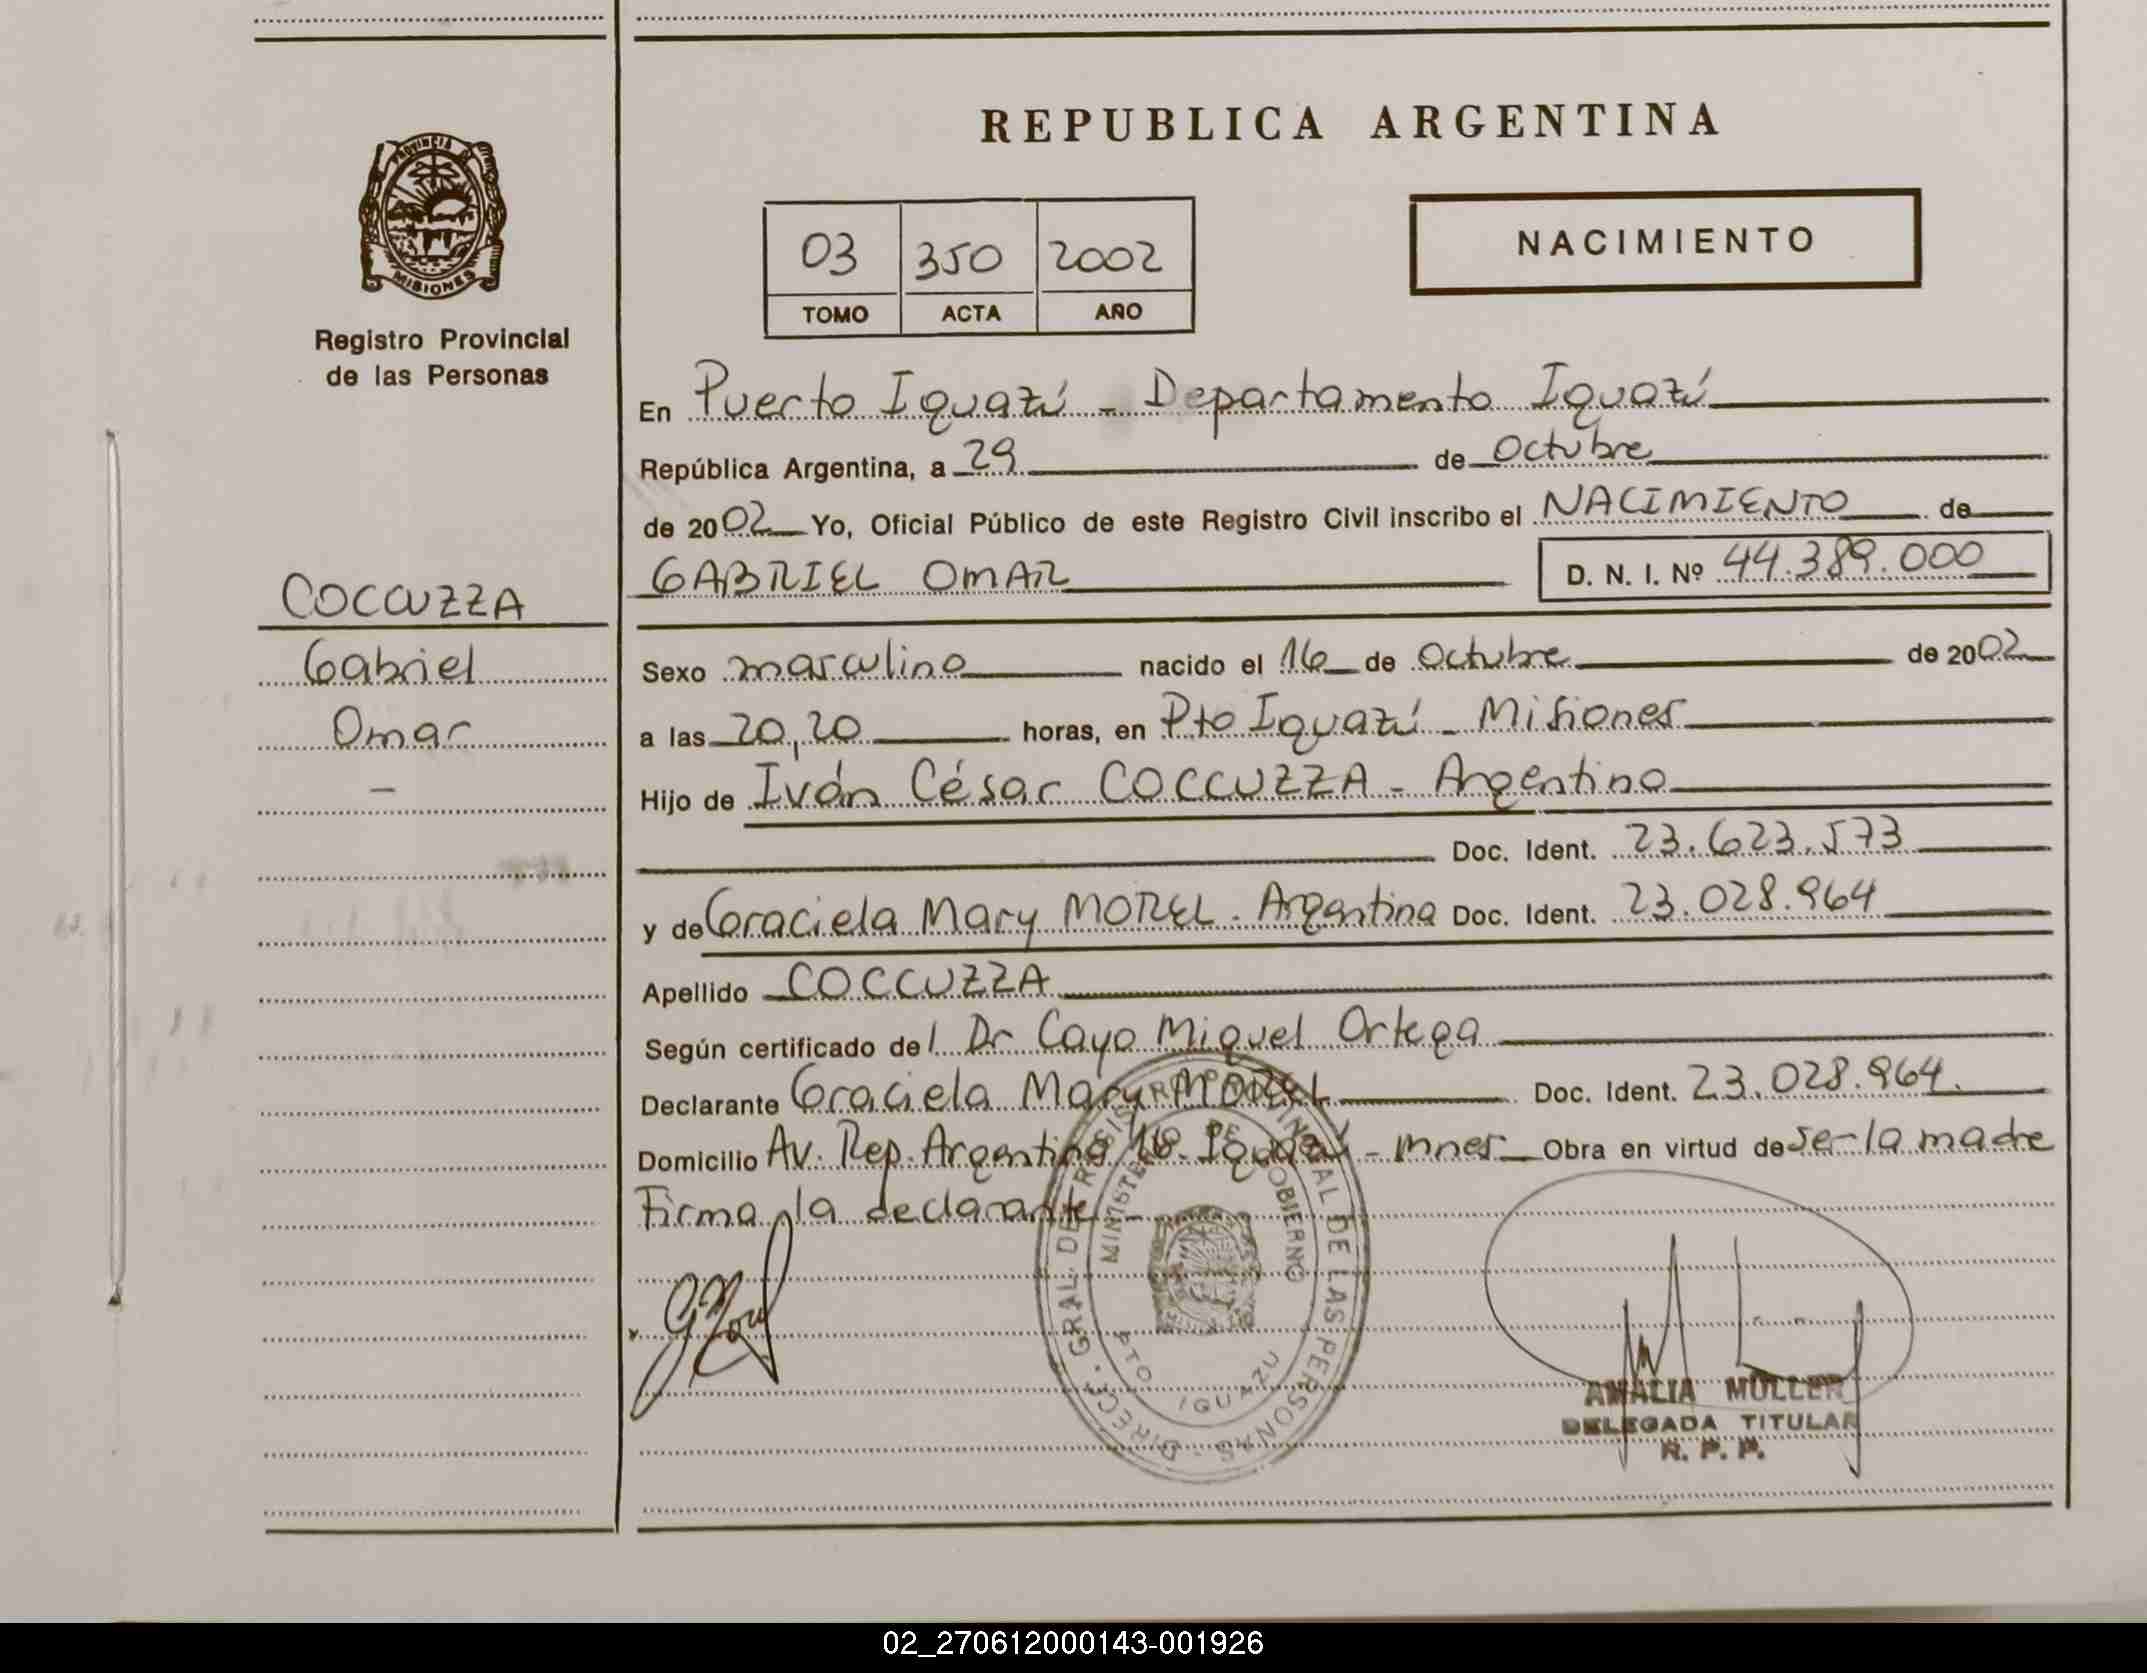 REPUBLICA ARGENTINA
PROVINCIA DE
MISIONES
Registro Provincial
de las Personas
03 350 2002
TOMO ACTA AÑO
NACIMIENTO
En Puerto Iguazú - Departamento Iguazú
República Argentina, a 29 de Octubre
de 2002 Yo, Oficial Público de este Registro Civil inscribo el NACIMIENTO de
GABRIEL OMAR D. N. I. Nº 44.389.000
COCCUZZA
Gabriel
Omar
-
Sexo masculino nacido el 16 de Octubre de 2002
a las 20,20 horas, en Pto Iguazú - Misiones
Hijo de Iván César COCCUZZA - Argentino
Doc. Ident. 23.623.573
y de Graciela Mary MOREL - Argentina Doc. Ident. 23.028.964
Apellido COCCUZZA
Según certificado del Dr Cayo Miguel Ortega
Declarante Graciela Mary MOREL Doc. Ident. 23.028.964.
Domicilio Av. Rep. Argentina Iguazú - Mnes Obra en virtud de ser la madre
Firma la declarante -
DIRECC. GRAL. DE REGISTRO PROVINCIAL DE LAS PERSONAS
MINISTERIO DE GOBIERNO
PTO IGUAZU
GMorel
AMALIA MULLER
DELEGADA TITULAR
R. P. P.
02_270612000143-001926